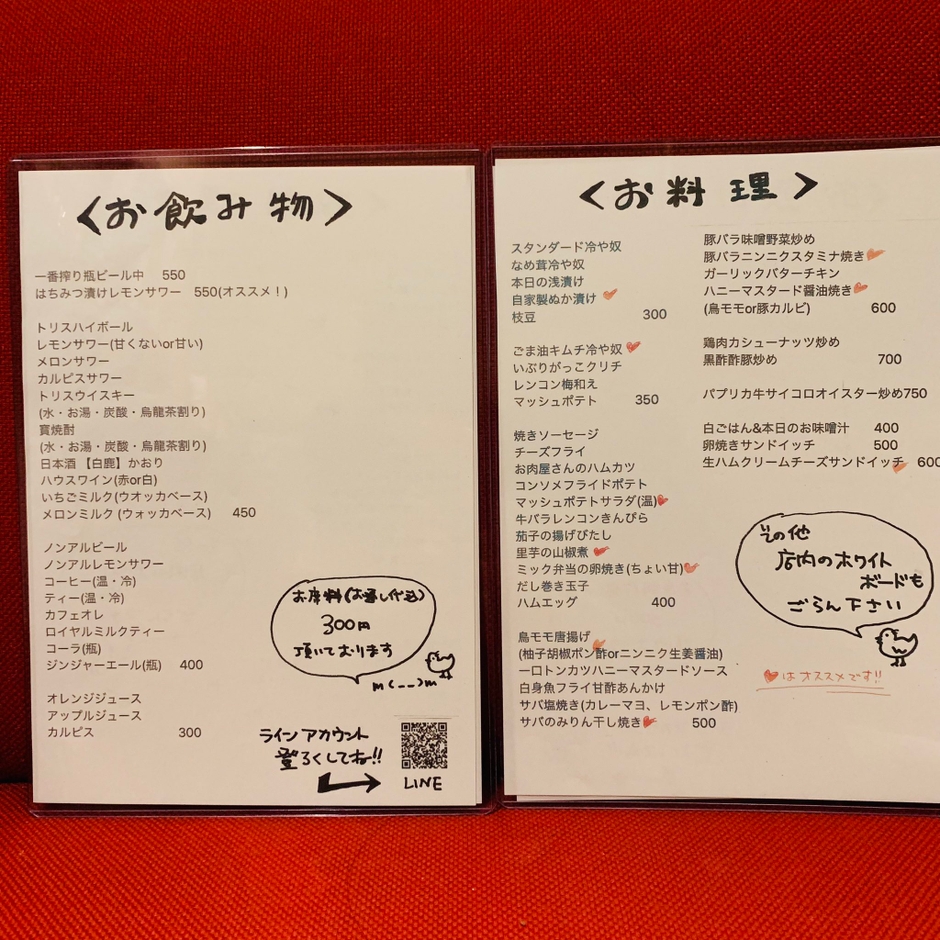 <お飲み物>
一番搾り瓶ビール中 550
はちみつ漬けレモンサワー 550(オススメ！)
トリスハイボール
レモンサワー(甘くないor甘い)
メロンサワー
カルピスサワー
トリスウイスキー
(水・お湯・炭酸・烏龍茶割り)
寶焼酎
(水・お湯・炭酸・烏龍茶割り)
日本酒 【白鹿】かおり
ハウスワイン(赤or白)
いちごミルク(ウオッカベース)
メロンミルク (ウォッカベース) 450
ノンアルビール
ノンアルレモンサワー
コーヒー(温・冷)
ティー(温・冷)
カフェオレ
ロイヤルミルクティー
コーラ(瓶)
ジンジャーエール(瓶) 400
オレンジジュース
アップルジュース
カルピス 300
お席料(お通し代込)
300円
頂いております
m(__)m
ラインアカウント
登ろくしてね!!
LINE
<お料理>
スタンダード冷や奴
なめ茸冷や奴
本日の浅漬け
自家製ぬか漬け
枝豆 300
ごま油キムチ冷や奴
いぶりがっこクリチ
レンコン梅和え
マッシュポテト 350
焼きソーセージ
チーズフライ
お肉屋さんのハムカツ
コンソメフライドポテト
マッシュポテトサラダ(温)
牛バラレンコンきんぴら
茄子の揚げびたし
里芋の山椒煮
ミック弁当の卵焼き(ちょい甘)
だし巻き玉子
ハムエッグ 400
鳥モモ唐揚げ
(柚子胡椒ポン酢orニンニク生姜醤油)
一口トンカツハニーマスタードソース
白身魚フライ甘酢あんかけ
サバ塩焼き(カレーマヨ、レモンポン酢)
サバのみりん干し焼き 500
豚バラ味噌野菜炒め
豚バラニンニクスタミナ焼き
ガーリックバターチキン
ハニーマスタード醤油焼き
(鳥モモor豚カルビ) 600
鶏肉カシューナッツ炒め
黒酢酢豚炒め 700
パプリカ牛サイコロオイスター炒め750
白ごはん&本日のお味噌汁 400
卵焼きサンドイッチ 500
生ハムクリームチーズサンドイッチ 600
その他
店内のホワイト
ボードも
ごらん下さい
はオススメです!!